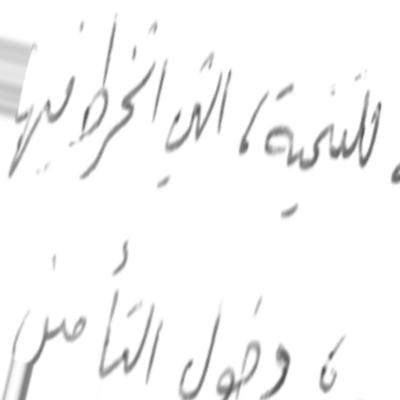 للتنمية، التي انخرط فيها
، دخول التأمين